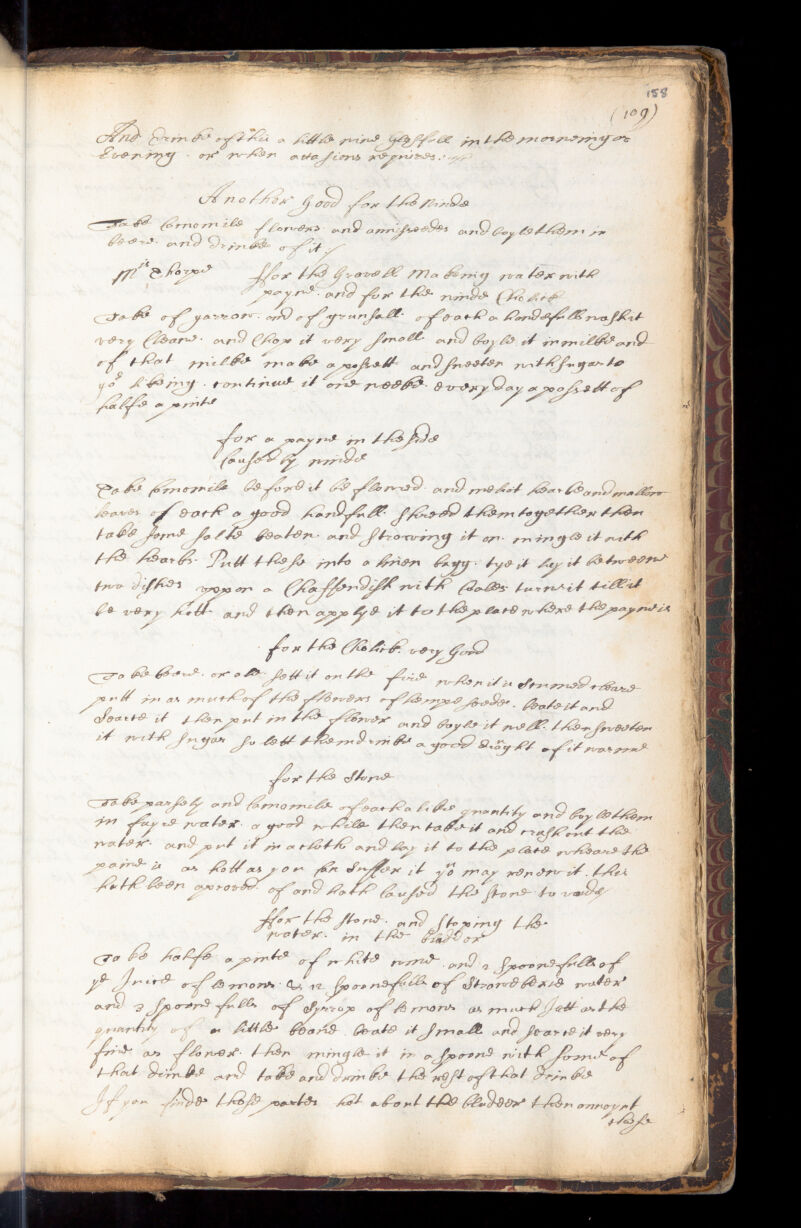 158
(109)
And drinke of this a little wine glasfull in the morneing or
Evening. or when occasions requires:
Another good for the winde
Take Camomile flowers and anniseedes and boyle them in
beere and drinke of it
Mrs Thorpe ffor the Gravell Makeing water with
payne. and for the winde Chollick
Take of yarrow. and of grunsall. of each a handefull wash it
very Cleane. and Chop it very small and boyle it in milke and
of that milke make a possett and sweeten with sugar to
yor likeing. continue it one weeke every day a possett of
halfe a pinte
for a payne in the side
Caused by winde
Take Camomile before it be flowred. and mehot hearbe and mallow
leaves of each a good handfull. Shreed them together then
take some salte beaten. and strowing it on. mingle it with
the hearbs. Putt these into a linen bagg. tye it lay it betweene
two dishes uppon a Chaffendish with Coales turne it till it
be very hott and then applye it to the place where the payne is
for the Chollick. very good
Take beere. or ale sett it on the fire when it is scumed cleare
putt in as much of the flowers of hempe seede. beate it and
searce it then put in the flower and boyle it well. then sweeten
it with sugar so lett them drinke a good draght of it warme
for the Stone
Take parsely and Camomile of each a like quantity and boyle them
in fayre water. a good while then take it and crush out the
water. and put it in a cloth and lay it to the place wheare the
paine is as hott as you can Suffer it you may renew it. this
hath been aproved of and hath Caused the stone to voide
ffor the stone. and stoping the
water. in the bladder
Take halfe a pinte of white wine. and 2 spoonefulls of
ye Juice of lemons. & 12 spoonefulls of Strawberie water
and 3 spoonefulls of Syrrop of lemons as much Jett as the
quantity of a little beane. beate it small and searce it very
fine as flower. then mingle it in a spoone with some of
that drinke and take and drinke the rest of that drinke
If you finde those partes hot about the bladder then annoynt
those